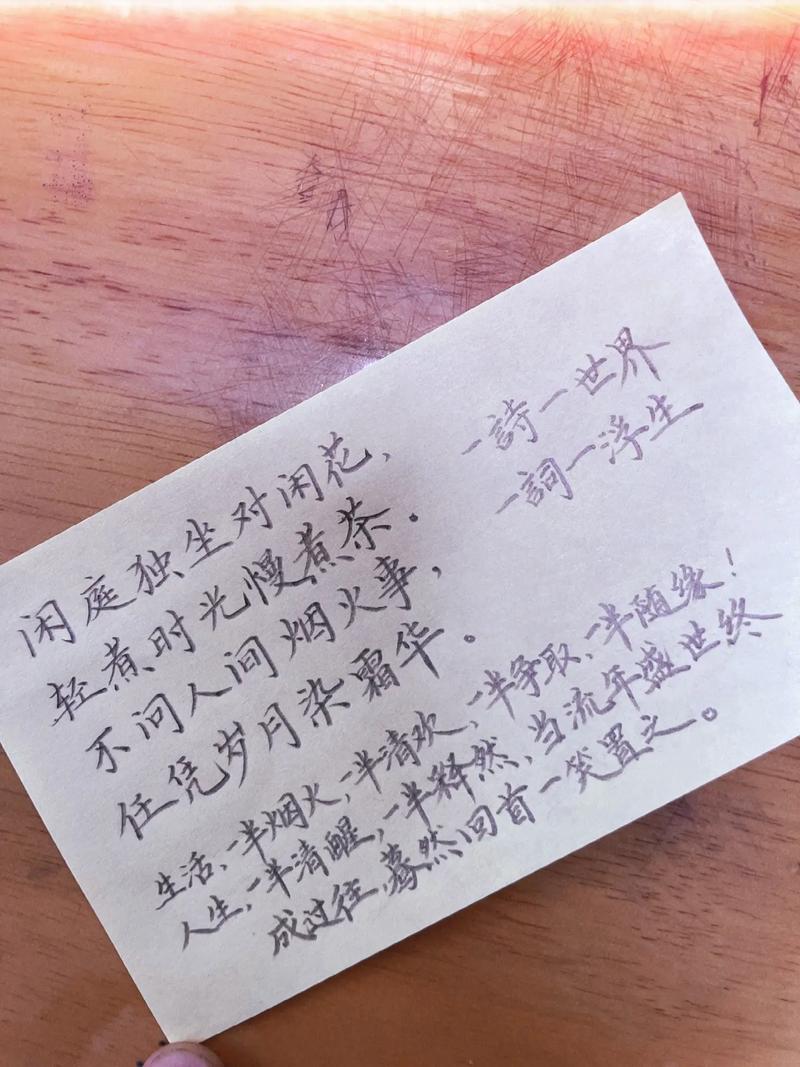 闲庭独坐对闲花，
轻煮时光慢煮茶。
不问人间烟火事，
任凭岁月染霜华。
一詩一世界
一詞一浮生
生活，一半烟火，一半清欢，一半争取，一半随缘！
人生，一半清醒，一半释然，当流年盛世终
成过往，蓦然回首一笑置之。